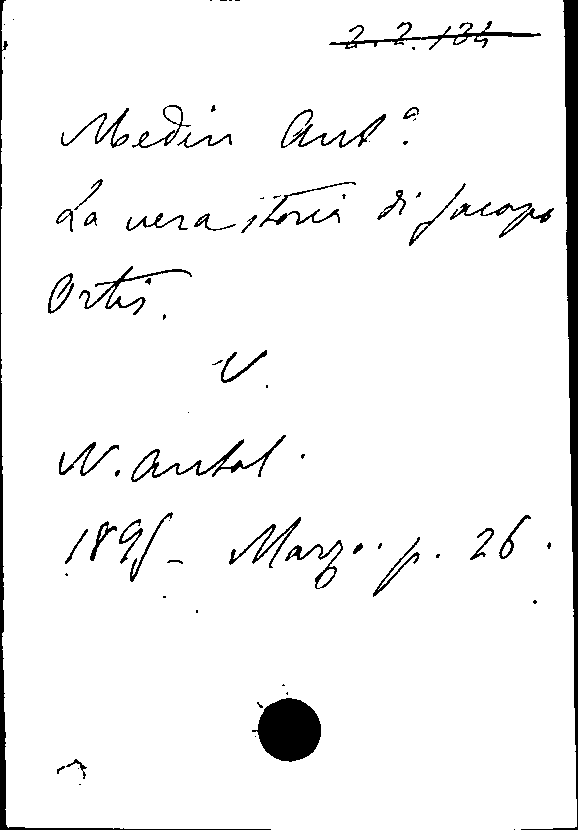 2.2.134
Medin Antº.
La vera storia di Jacopo
Ortis.
V.
N. Antol.
1895 - Marzo. p. 26.